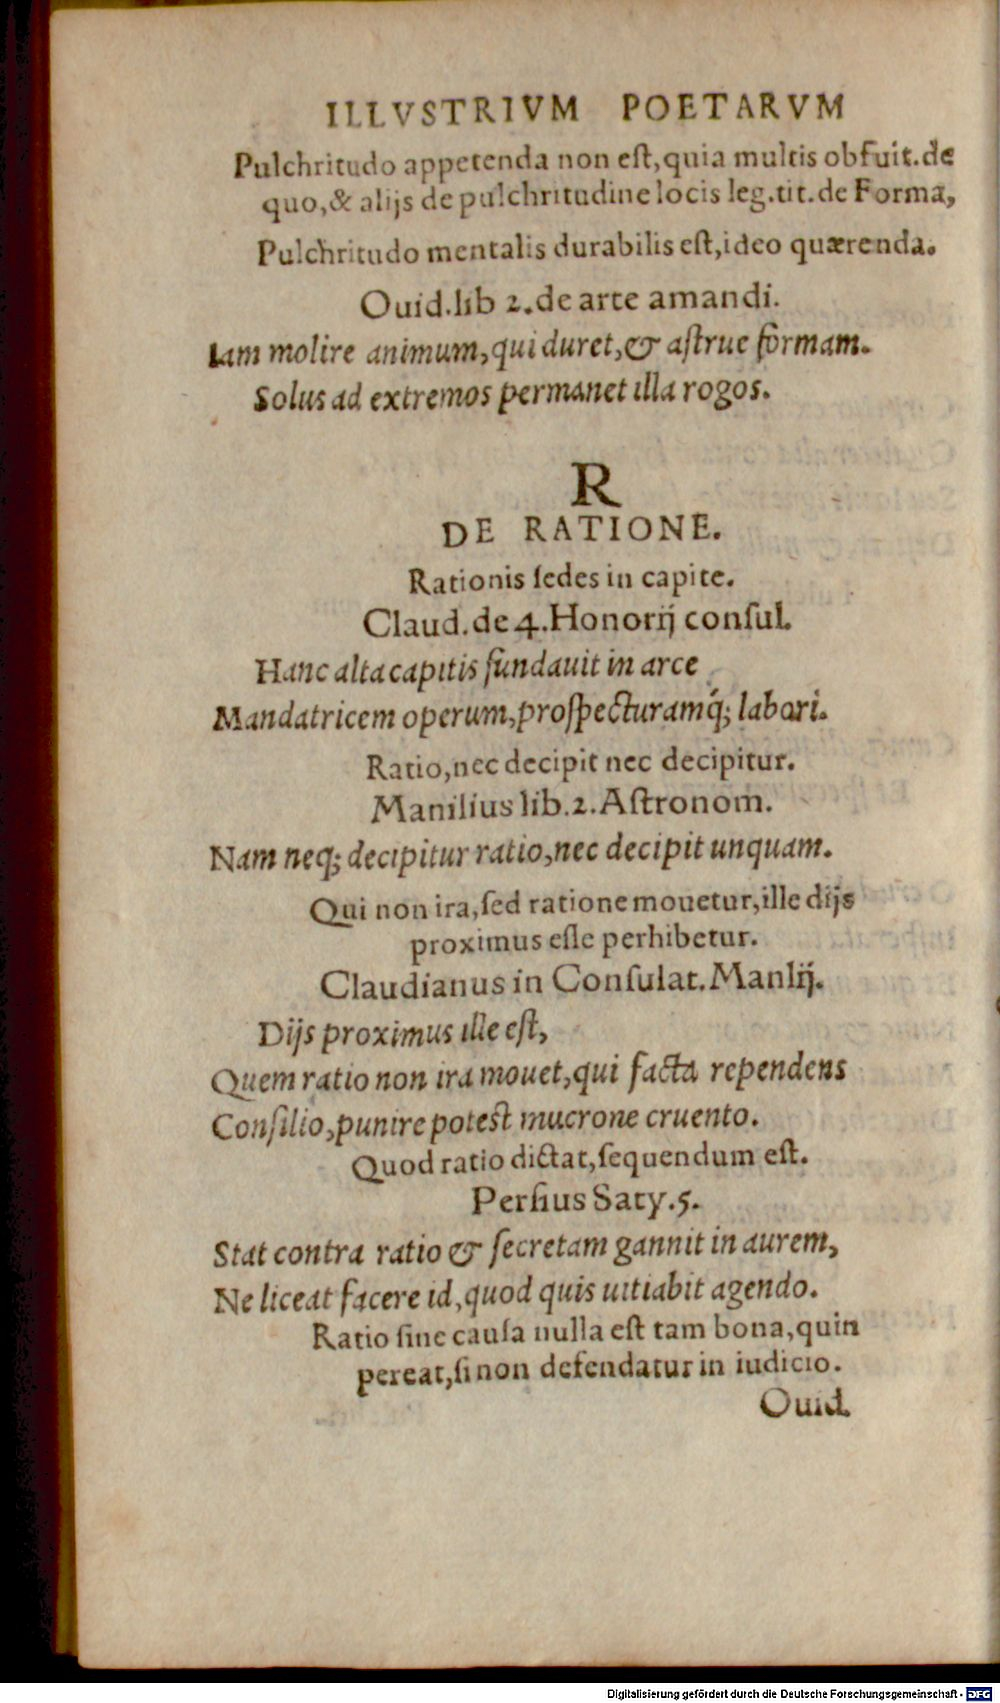 ILLVSTRIVM POETARVM
Pulchritudo appetenda non eſt, quia multis obfuit. de
quo, & alijs de pulchritudine locis leg. tit. de Forma,
Pulchritudo mentalis durabilis eſt, ideo quærenda.
Ouid. lib 2. de arte amandi.
Iam molire animum, qui duret, & aſtrue formam.
Solus ad extremos permanet illa rogos.
R
DE RATIONE.
Rationis ſedes in capite.
Claud. de 4. Honorij conſul.
Hanc alta capitis fundauit in arce
Mandatricem operum, proſpecturamq́; labori.
Ratio, nec decipit nec decipitur.
Manilius lib. 2. Aſtronom.
Nam neq; decipitur ratio, nec decipit unquam.
Qui non ira, ſed ratione mouetur, ille dijs
proximus eſſe perhibetur.
Claudianus in Conſulat. Manlij.
Dijs proximus ille eſt,
Quem ratio non ira mouet, qui facta rependens
Conſilio, punire poteſt mucrone cruento.
Quod ratio dictat, ſequendum eſt.
Perſius Saty. 5.
Stat contra ratio & ſecretam gannit in aurem,
Ne liceat facere id, quod quis uitiabit agendo.
Ratio ſine cauſa nulla eſt tam bona, quin
pereat, ſi non defendatur in iudicio.
Ouid.
Digitalisierung gefördert durch die Deutsche Forschungsgemeinschaft - DFG